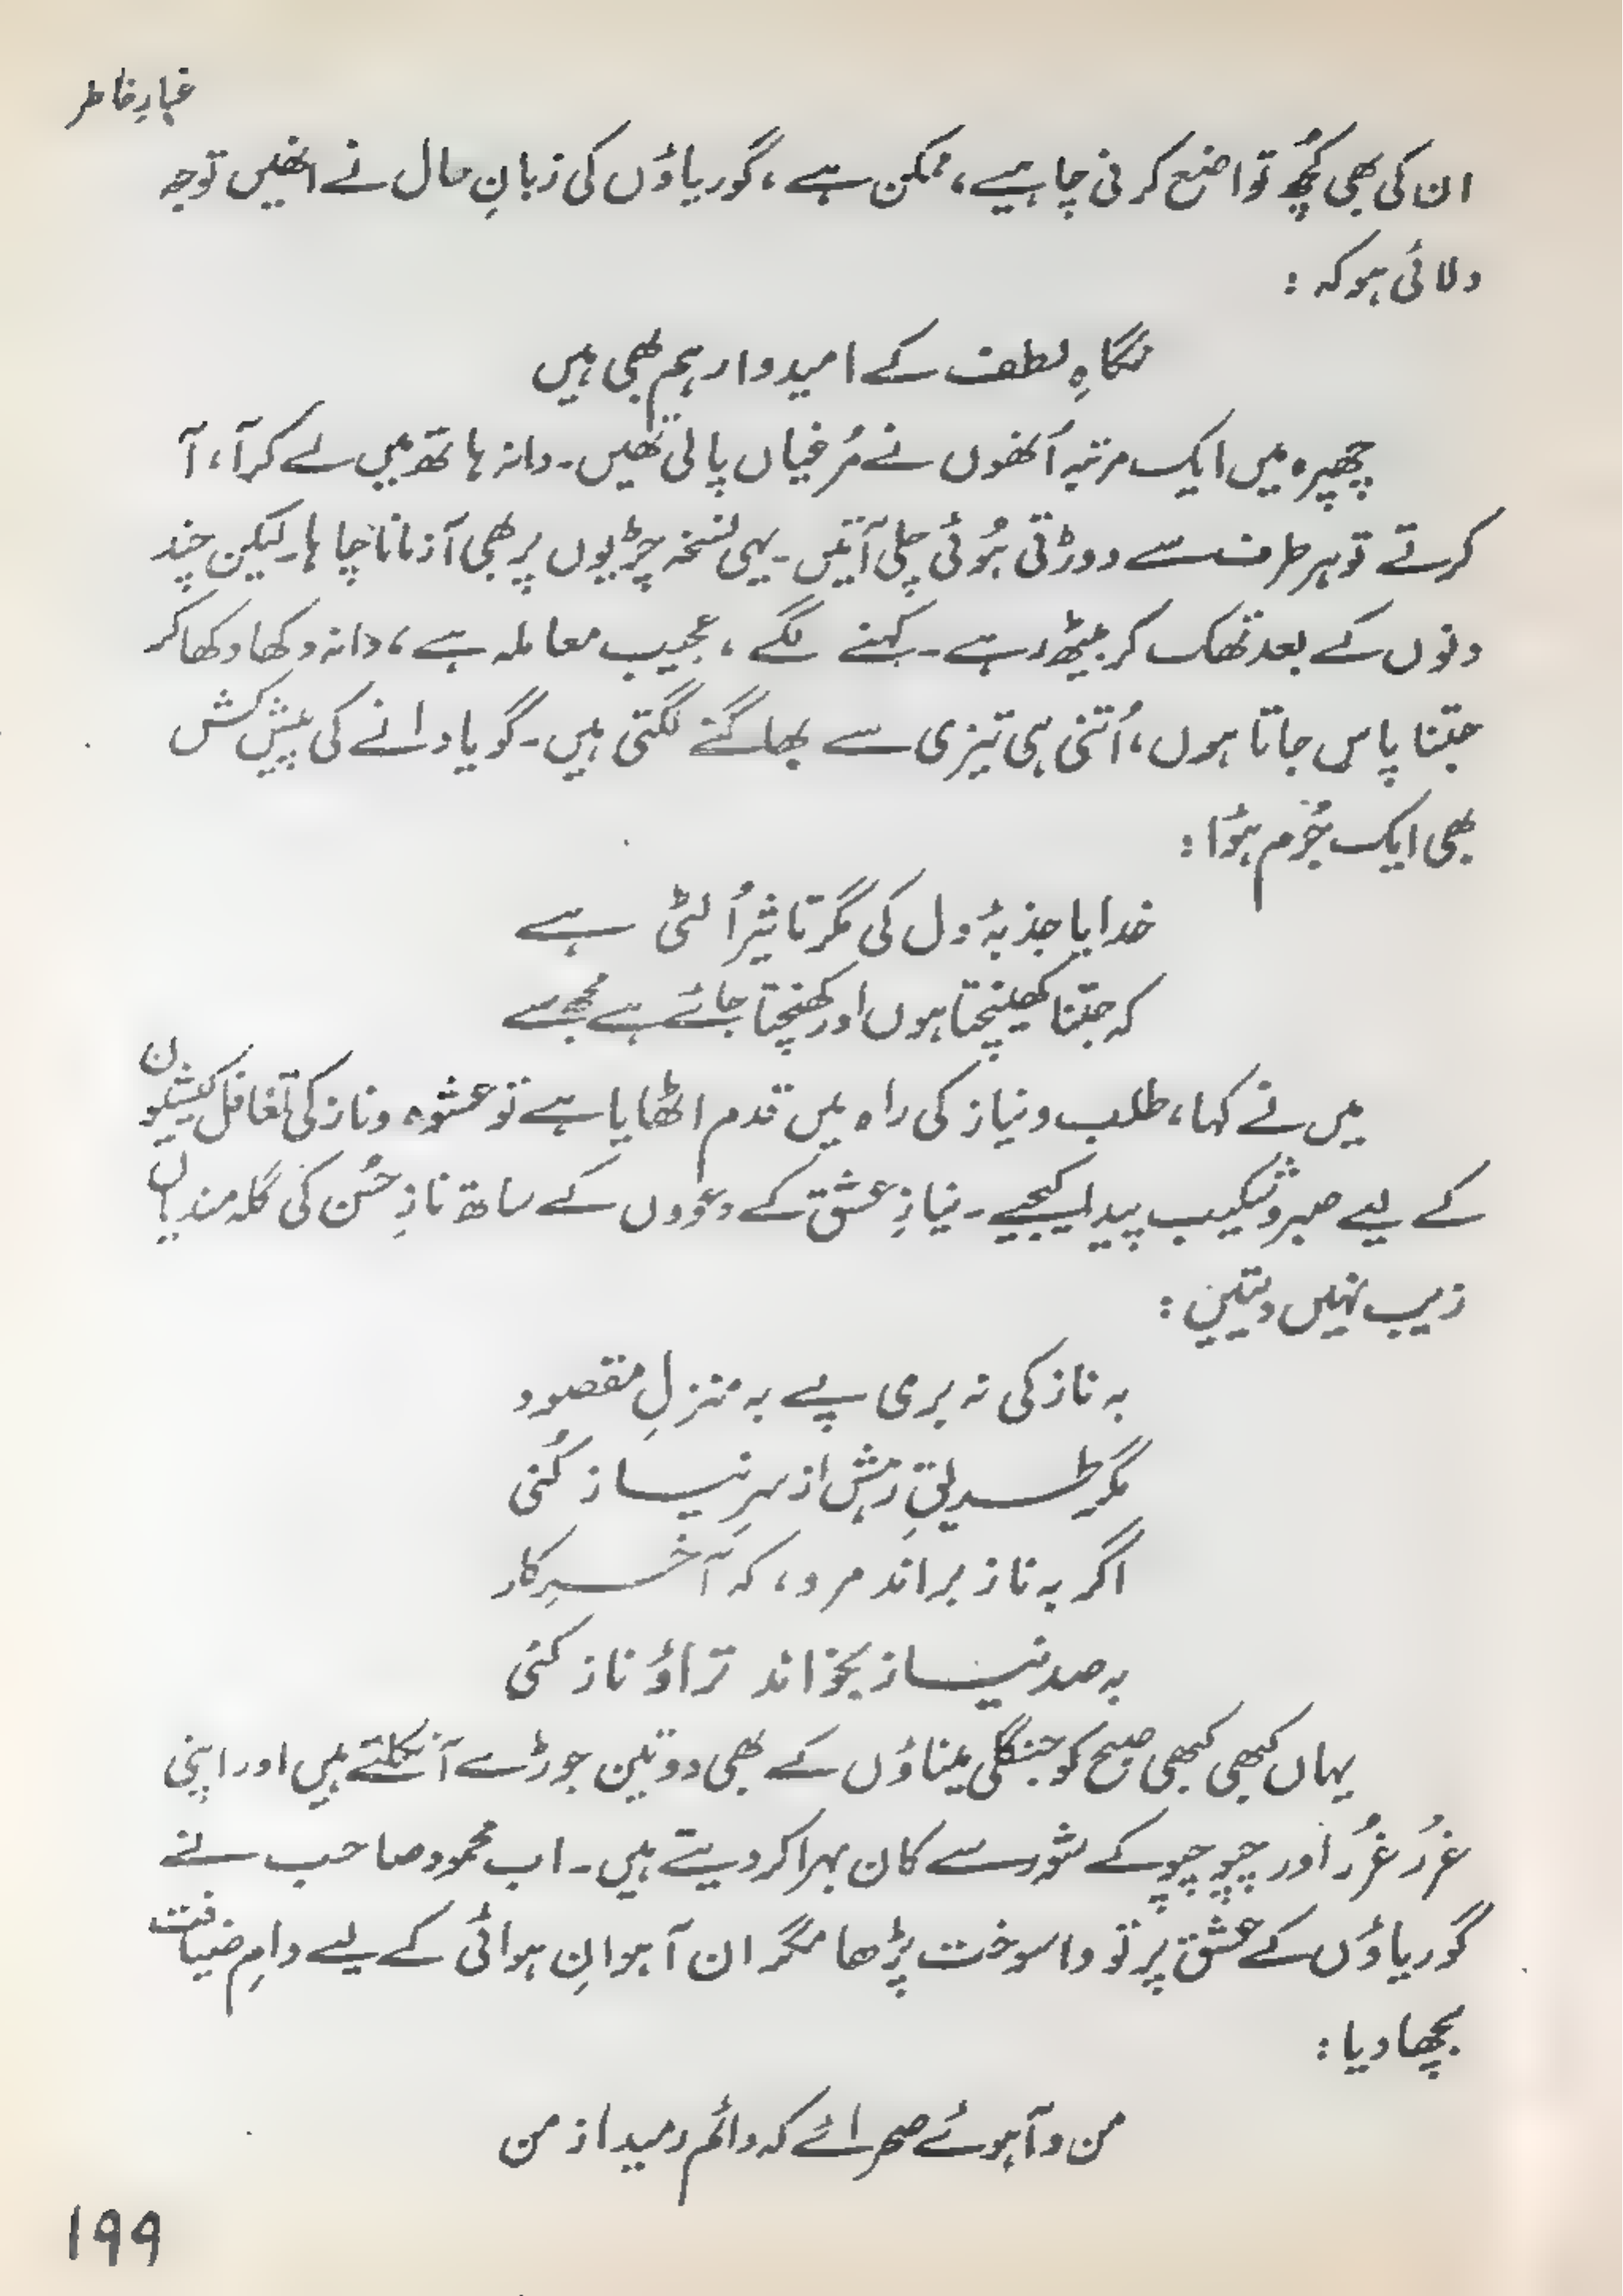 غبارِ خاطر
ان کی بھی کچھ تواضع کرنی چاہیے، ممکن ہے، گوریاؤں کی زبانِ حال نے انھیں توجہ
دلائی ہو کہ :
نگاہِ لطف کے امیدوار ہم بھی ہیں
چھپرہ میں ایک مرتبہ اُنھوں نے مُرغیاں پالی تھیں۔ دانہ ہاتھ میں لے کر آ، آ
کرتے تو ہر طرف سے دوڑتی ہُوئی چلی آتیں۔ یہی نسخہ چڑیوں پر بھی آزمانا چاہا۔ لیکن چند
دنوں کے بعد تھک کر بیٹھ رہے۔ کہنے لگے، عجیب معاملہ ہے، دانہ دکھا دکھا کر
جتنا پاس جاتا ہوں، اُتنی ہی تیزی سے بھاگنے لگتی ہیں۔ گویا دانے کی پیش کش
بھی ایک جُرم ہُوا :
خدایا جذبۂ دل کی مگر تاثیر اُلٹی ہے
کہ جتنا کھینچتا ہوں اور کھنچتا جائے ہے مجھ سے
میں نے کہا، طلب و نیاز کی راہ میں قدم اٹھایا ہے تو عشوہ و ناز کی تغافل کیشیوں
کے لیے صبر و شکیب پیدا کیجیے۔ نیازِ عشق کے دعووں کے ساتھ نازِ حُسن کی گلہ مندیاں
زیب نہیں دیتیں :
بہ ناز کی نہ بری پے بہ منزلِ مقصود
مگر طریقِ رہش از سرِ نیاز کُنی
اگر بہ ناز براند مرو، کہ آخرِ کار
بہ صد نیاز بخواند ترا و ٔ ناز کنی
یہاں کبھی کبھی صبح کو جنگلی میناؤں کے بھی دو تین جوڑے آ نکلتے ہیں اور اپنی
غرُ غرُ اور چیو چیو کے شور سے کان بہرا کر دیتے ہیں۔ اب محمود صاحب نے
گوریاؤں کے عشق پر تو واسوخت پڑھا مگر ان آہوانِ ہوائی کے لیے دامِ ضیافت
بچھا دیا :
من و آہوئے صحرائے کہ دائم رمید از من
۱۹۹